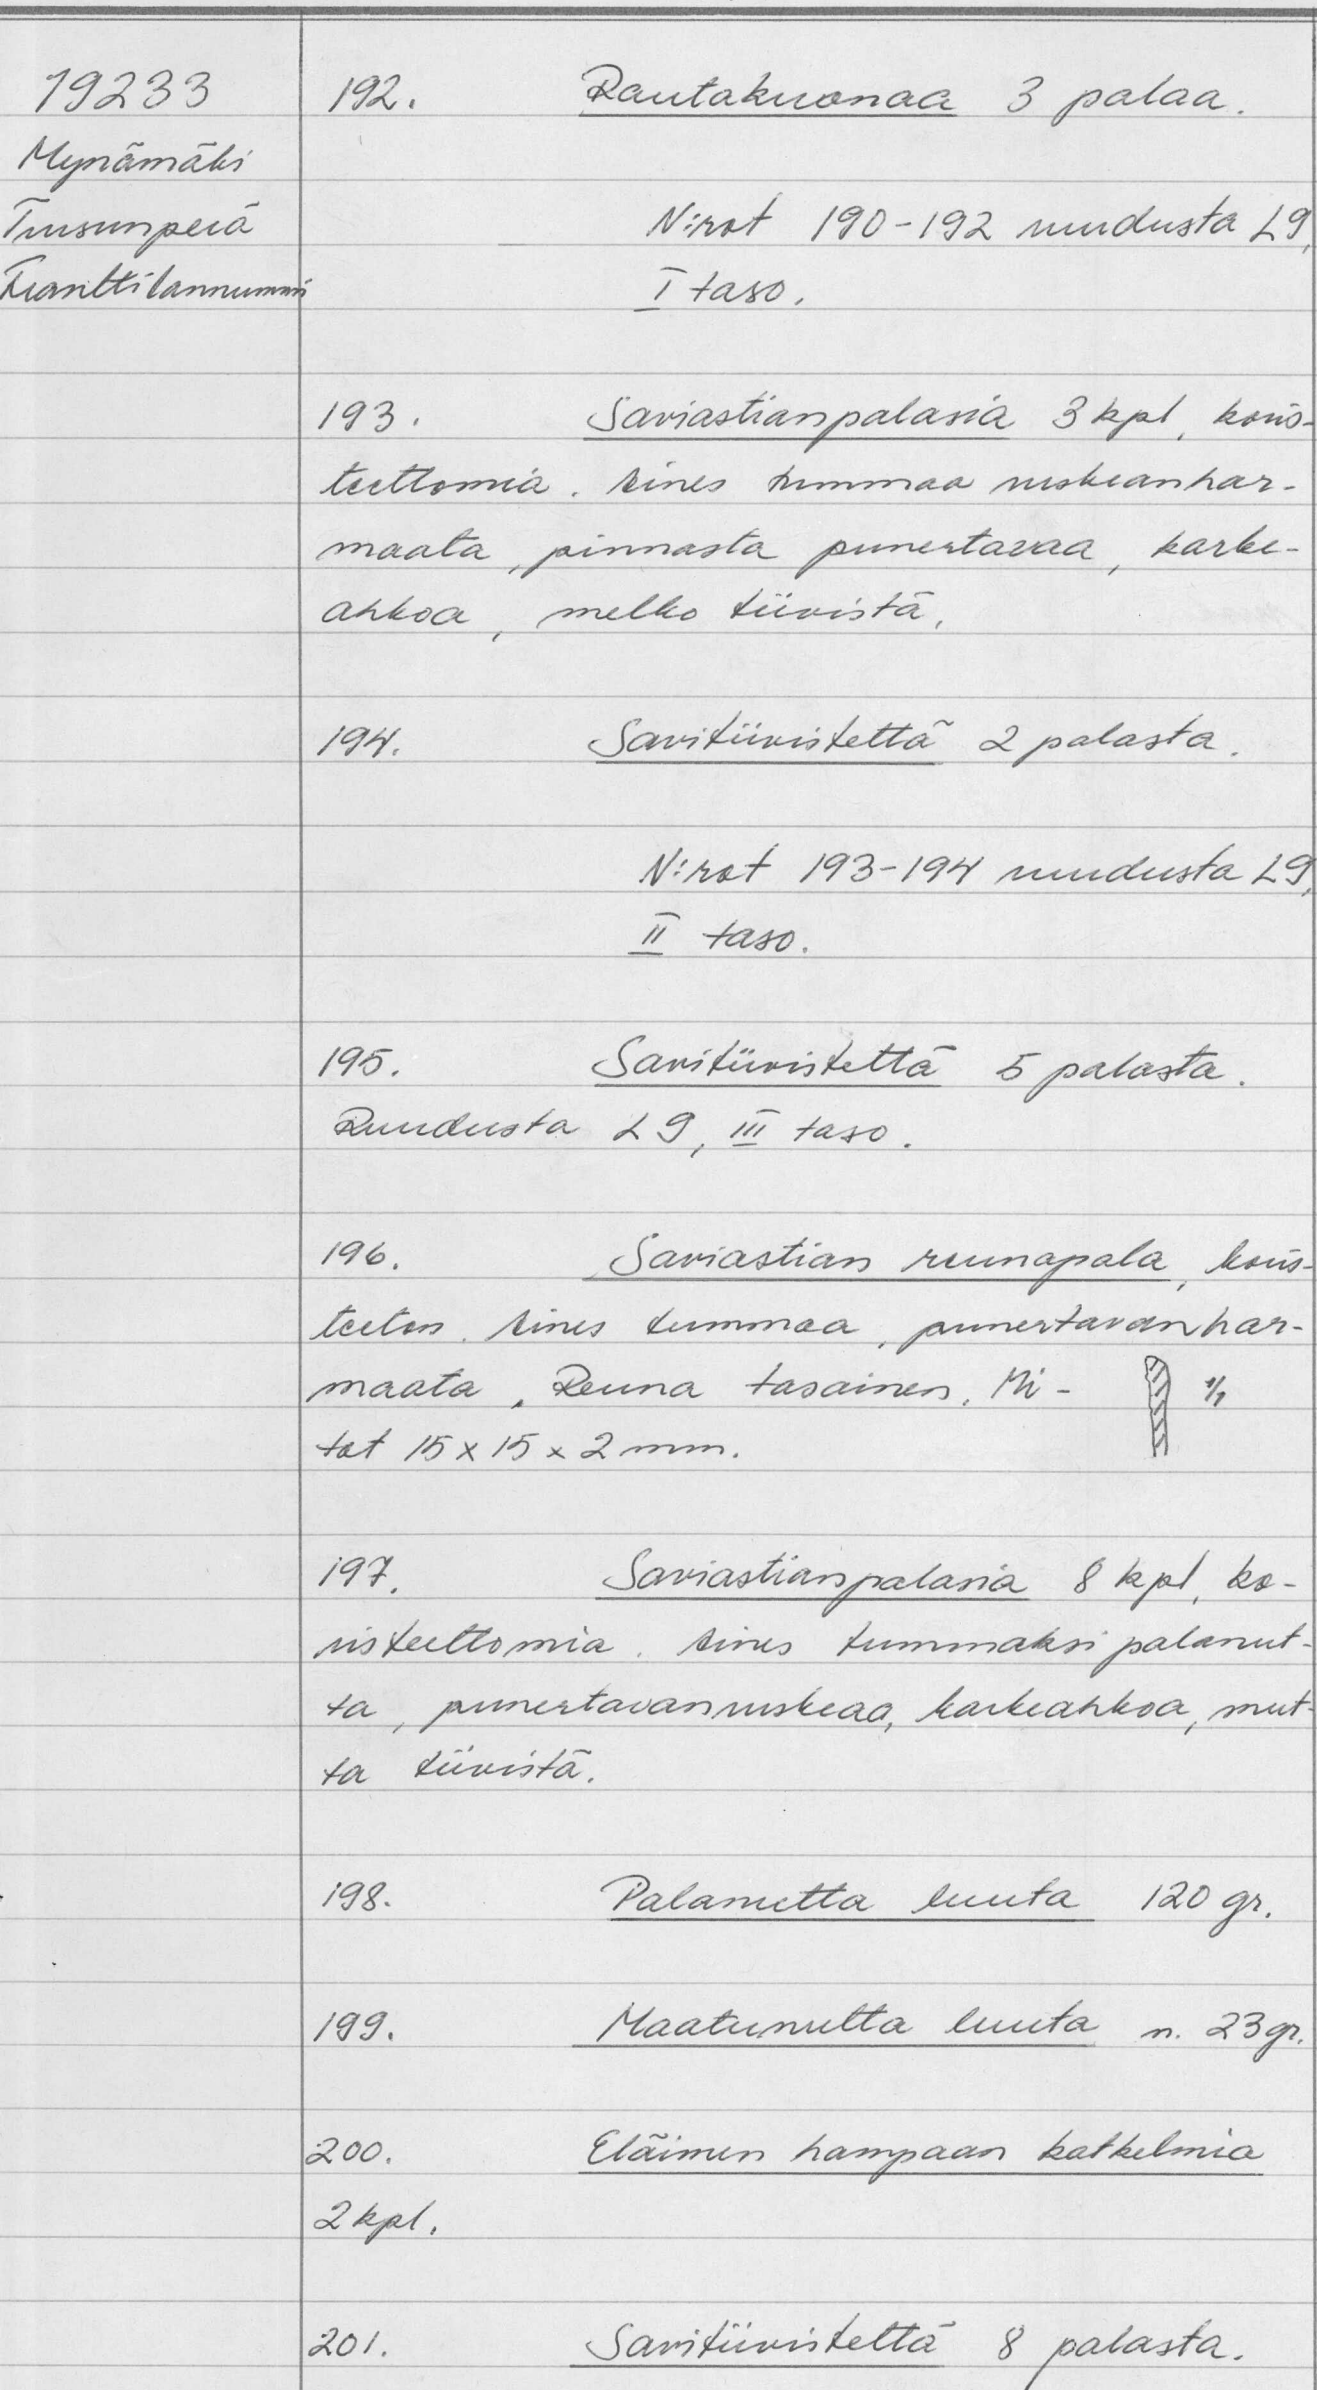 19233
Mynämäki
Tursunperä
Franttilannummi
192. Rautakuonaa 3 palaa.
N:rot 190-192 ruudusta L9,
I taso.
193. Saviastianpalasia 3 kpl, koris-
teettomia. Aines tummaa ruskeanhar-
maata, pinnasta punertavaa, karke-
ahkoa, melko tiivistä.
194. Savitiivistettä 2 palasta.
N:rot 193-194 ruudusta L9,
II taso.
195. Savitiivistettä 5 palasta.
Ruudusta L9, III taso.
196. Saviastian reunapala, koris-
teeton. Aines tummaa, punertavanhar-
maata. Reuna tasainen. Mi-
tat 15 x 15 x 2 mm.
1/1
197. Saviastianpalasia 8 kpl, ko-
risteettomia. Aines tummaksi palanut-
ta, punertavanruskeaa, karkeahkoa, mut-
ta tiivistä.
198. Palanutta luuta 120 gr.
199. Maatunutta luuta n. 23 gr.
200. Eläimen hampaan katkelmia
2 kpl.
201. Savitiivistettä 8 palasta.